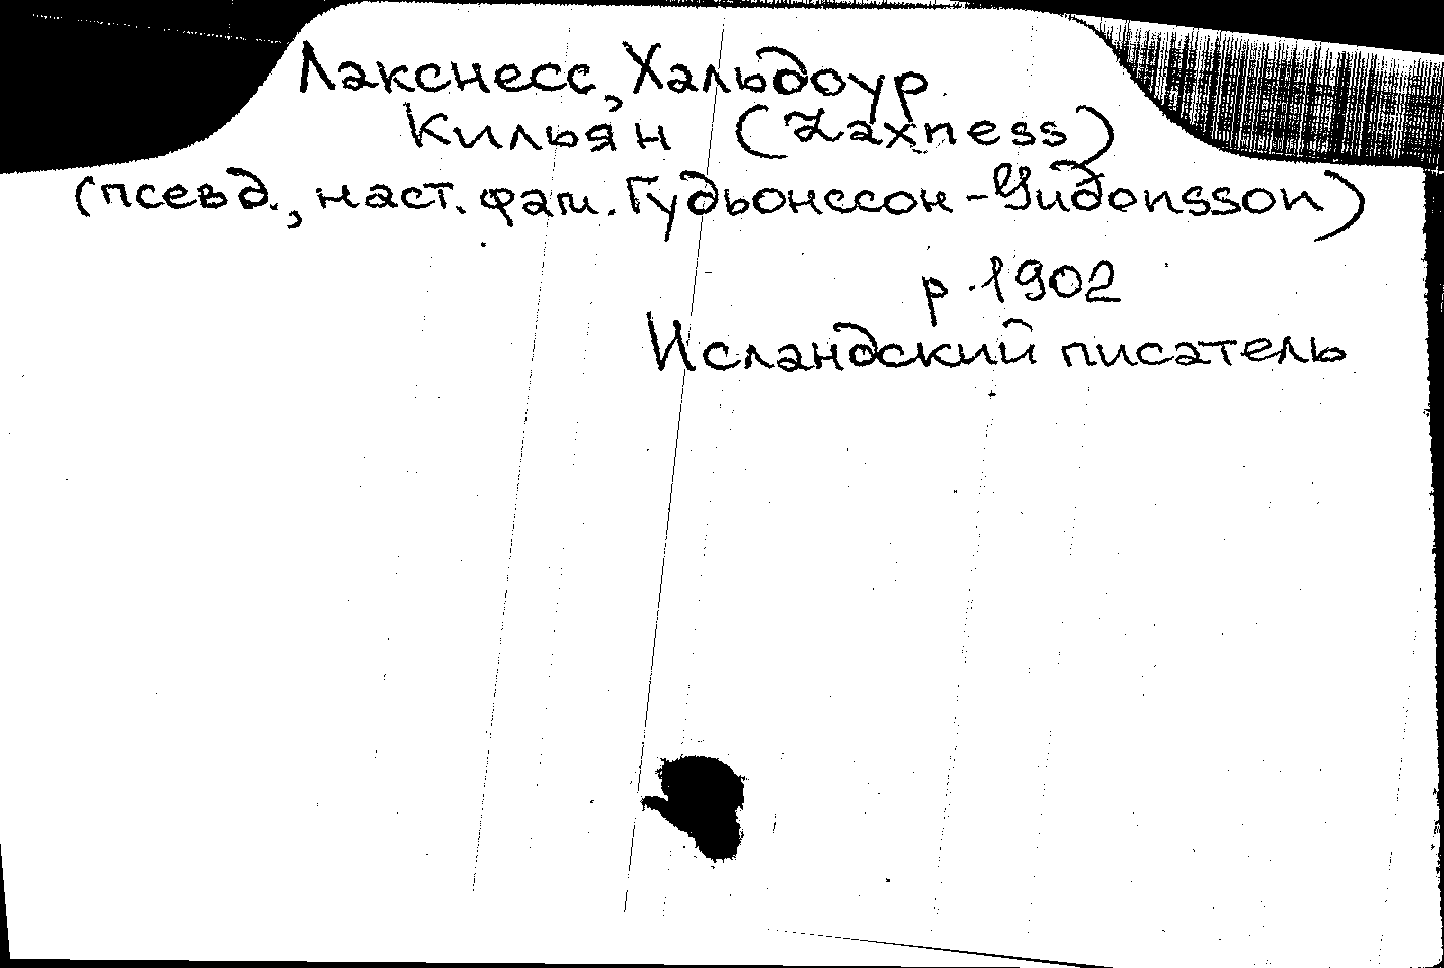 Лакснесс, Хальдоур
Кильян (Laxness)
(псевд., наст. фам. Гудьонссон - Gudonsson)
р. 1902
Исландский писатель